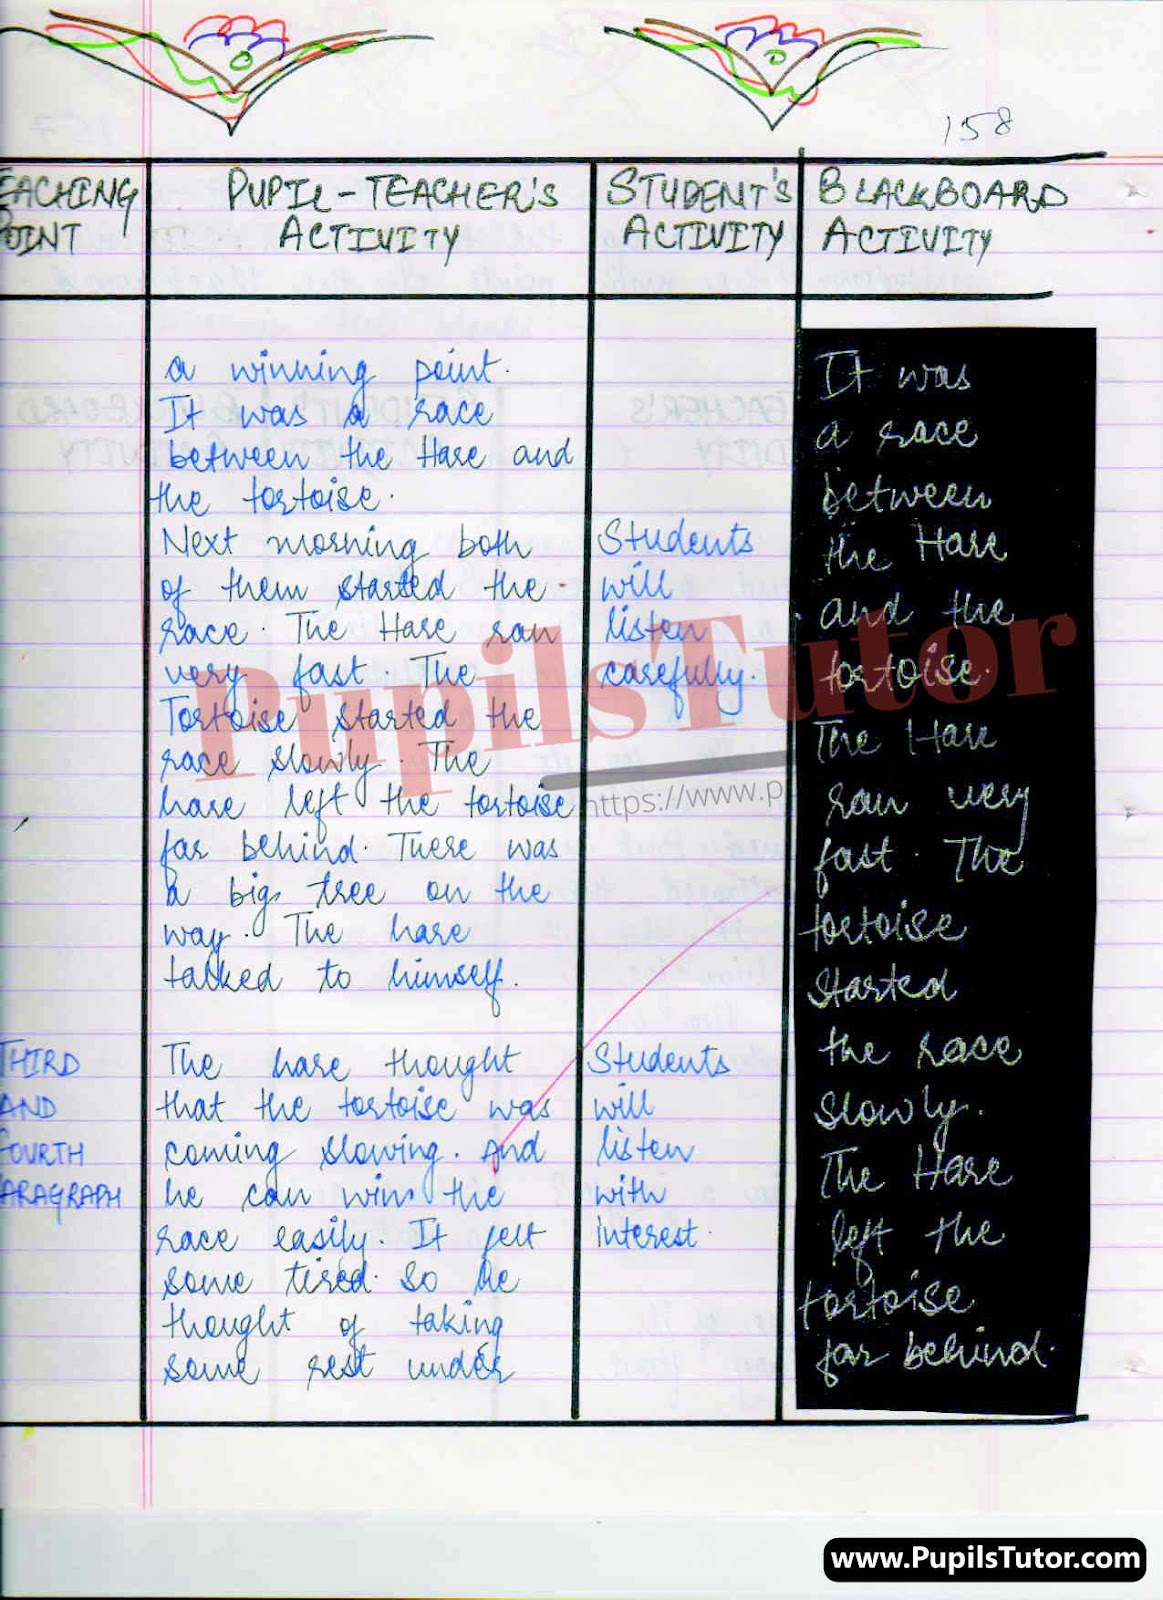 158
EACHING
POINT
PUPIL-TEACHER'S
ACTIVITY
STUDENT'S
ACTIVITY
BLACKBOARD
ACTIVITY
a winning point.
It was a race
between the Hare and
the tortoise.
Next morning both
of them started the
race. The Hare ran
very fast. The
Tortoise started the
race slowly. The
hare left the tortoise
far behind. There was
a big tree on the
way. The hare
talked to himself.
Students
will
listen
carefully.
THIRD
AND
FOURTH
PARAGRAPH
The hare thought
that the tortoise was
coming slowing. And
he can win the
race easily. It felt
some tired. So he
thought of taking
some rest under
Students
will
listen
with
interest.
It was
a race
between
the Hare
and the
tortoise.
The Hare
ran very
fast. The
tortoise
started
the race
slowly.
The Hare
left the
tortoise
far behind.
PupilsTutor
https://www.p
www.PupilsTutor.com